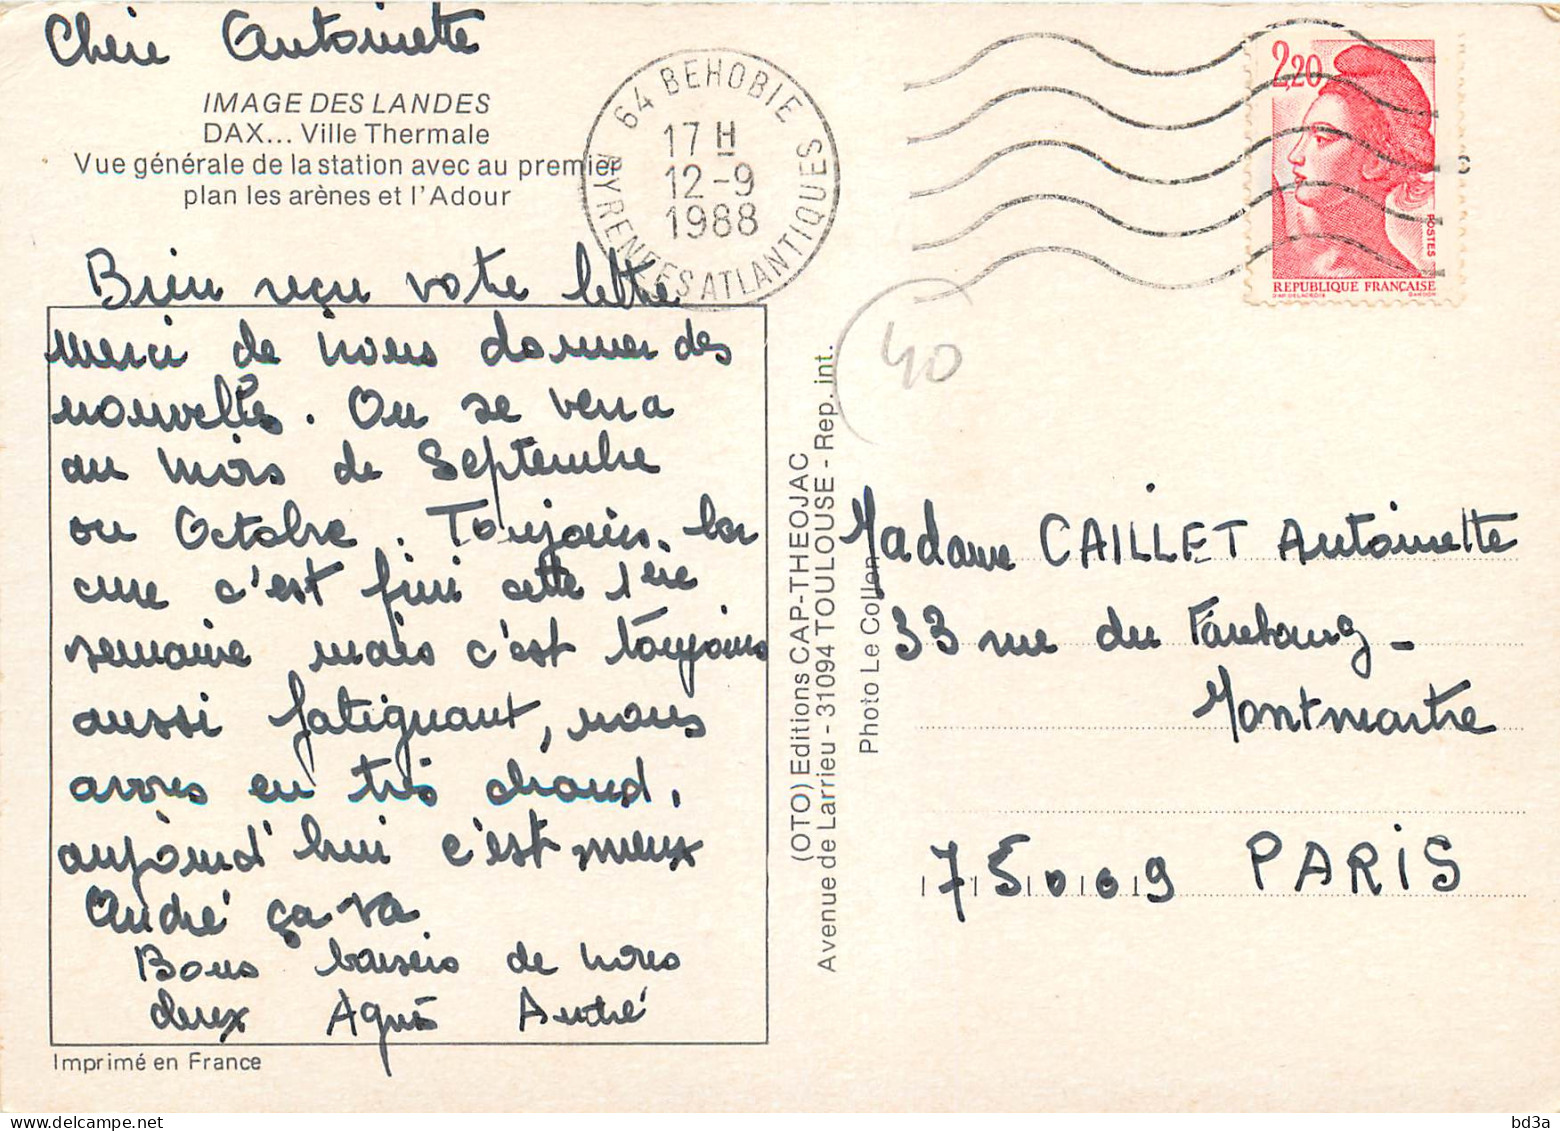 Chère Antoinette
IMAGE DES LANDES
DAX... Ville Thermale
Vue générale de la station avec au premier
plan les arènes et l'Adour
Bien reçu votre lettre
merci de nous donner des
nouvelles. On se verra
au mois de Septembre
ou Octobre. Toujours. La
cure c'est fini cette 1ère
semaine mais c'est toujours
aussi fatiguant, nous
avons eu très chaud.
aujourd'hui c'est mieux
André ça va
Bons baisers de nous
deux Agnès André
Imprimé en France
64 BEHOBIE
17 H
12-9
1988
PYRENEES ATLANTIQUES
2,20
POSTES
REPUBLIQUE FRANÇAISE
D'AP. DELACROIX GANDON
40
(OTO) Editions CAP-THEOJAC
Avenue de Larrieu - 31094 TOULOUSE - Rep. int.
Photo Le Collen
Madame CAILLET Antoinette
33 rue du Faubourg -
Montmartre
75009 PARIS
bd3a